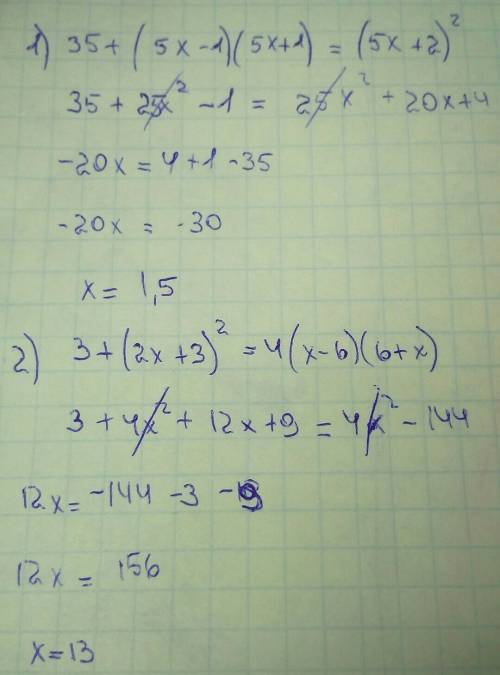 1) 35 + (5x - 1)(5x + 1) = (5x + 2)²
35 + 25x² - 1 = 25x² + 20x + 4
-20x = 4 + 1 - 35
-20x = -30
x = 1,5
2) 3 + (2x + 3)² = 4(x - 6)(6 + x)
3 + 4x² + 12x + 9 = 4x² - 144
12x = -144 - 3 - 9
12x = 156
x = 13